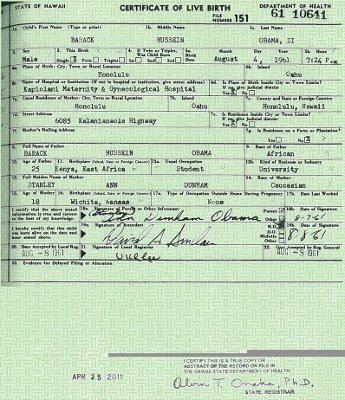 STATE OF HAWAII
CERTIFICATE OF LIVE BIRTH
DEPARTMENT OF HEALTH
FILE NUMBER 151
61 10641
1a. Child's First Name (Type or print)
1b. Middle Name
1c. Last Name
BARACK
HUSSEIN
OBAMA, II
2. Sex
3. This Birth
4. If Twin or Triplet, Was Child Born
5a. Birth Date
Month
Day
Year
5b. Hour
Male
Single
Twin
Triplet
August
4, 1961
7:24 P.M.
6a. Place of Birth: City, Town or Rural Location
6b. Island
Honolulu
Oahu
6c. Name of Hospital or Institution (If not in hospital or institution, give street address)
6d. Is Place of Birth Inside City or Town Limits?
If no, give judicial district
Kapiolani Maternity & Gynecological Hospital
Yes
No
7a. Usual Residence of Mother: City, Town or Rural Location
7b. Island
7c. County and State or Foreign Country
Honolulu
Oahu
Honolulu, Hawaii
7d. Street Address
7e. Is Residence Inside City or Town Limits?
If no, give judicial district
6085 Kalanianaole Highway
Yes
No
7f. Mother's Mailing Address
7g. Is Residence on a Farm or Plantation?
Yes
No
8. Full Name of Father
9. Race of Father
BARACK
HUSSEIN
OBAMA
African
10. Age of Father
11. Birthplace (Island, State or Foreign Country)
12a. Usual Occupation
12b. Kind of Business or Industry
25
Kenya, East Africa
Student
University
13. Full Maiden Name of Mother
14. Race of Mother
STANLEY
ANN
DUNHAM
Caucasian
15. Age of Mother
16. Birthplace (Island, State or Foreign Country)
17a. Type of Occupation Outside Home During Pregnancy
17b. Date Last Worked
18
Wichita, Kansas
None
I certify that the above stated information is true and correct to the best of my knowledge.
18a. Signature of Parent or Other Informant
Ann Dunham Obama
Parent
Other
18b. Date of Signature
8-7-61
I hereby certify that this child was born alive on the date and hour stated above.
19a. Signature of Attendant
David A Sinclair
M.D.
D.O.
Midwife
Other
19b. Date of Signature
8-8-61
20. Date Accepted by Local Reg.
AUG -8 1961
21. Signature of Local Registrar
22. Date Accepted by Reg. General
AUG -8 1961
23. Evidence for Delayed Filing or Alteration
APR 25 2011
I CERTIFY THIS IS A TRUE COPY OR
ABSTRACT OF THE RECORD ON FILE IN
THE HAWAII STATE DEPARTMENT OF HEALTH
Alvin T. Onaka, Ph.D.
STATE REGISTRAR